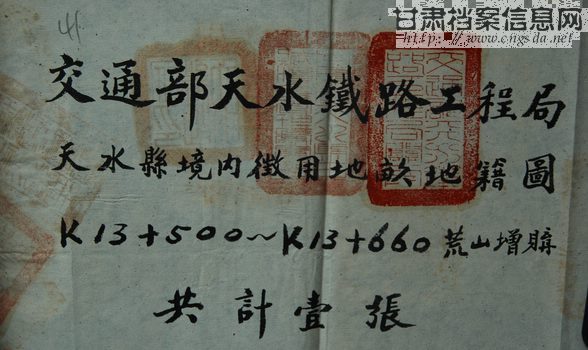 41
甘肃档案信息网
http://www.cngsda.net/
交通部天水鐵路工程局
天水縣境内徵用地畝地籍圖
K13+500~K13+660荒山增購
共計壹張